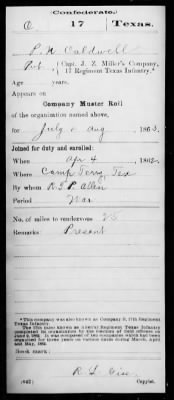 (Confederate.)
C 17 Texas.
P. H. Caldwell
Pvt., Capt. J. Z. Miller's Company,
17 Regiment Texas Infantry.*
Age years.
Appears on
Company Muster Roll
of the organization named above,
for July & Aug, 1863.
Joined for duty and enrolled:
When Apr 4, 1862.
Where Camp Terry, Tex
By whom R. T. P. Allen
Period War
No. of miles to rendezvous 25
Remarks: Present
*This company was also known as Company C, 17th Regiment
Texas Infantry.
Book mark:
(642) Copyist.